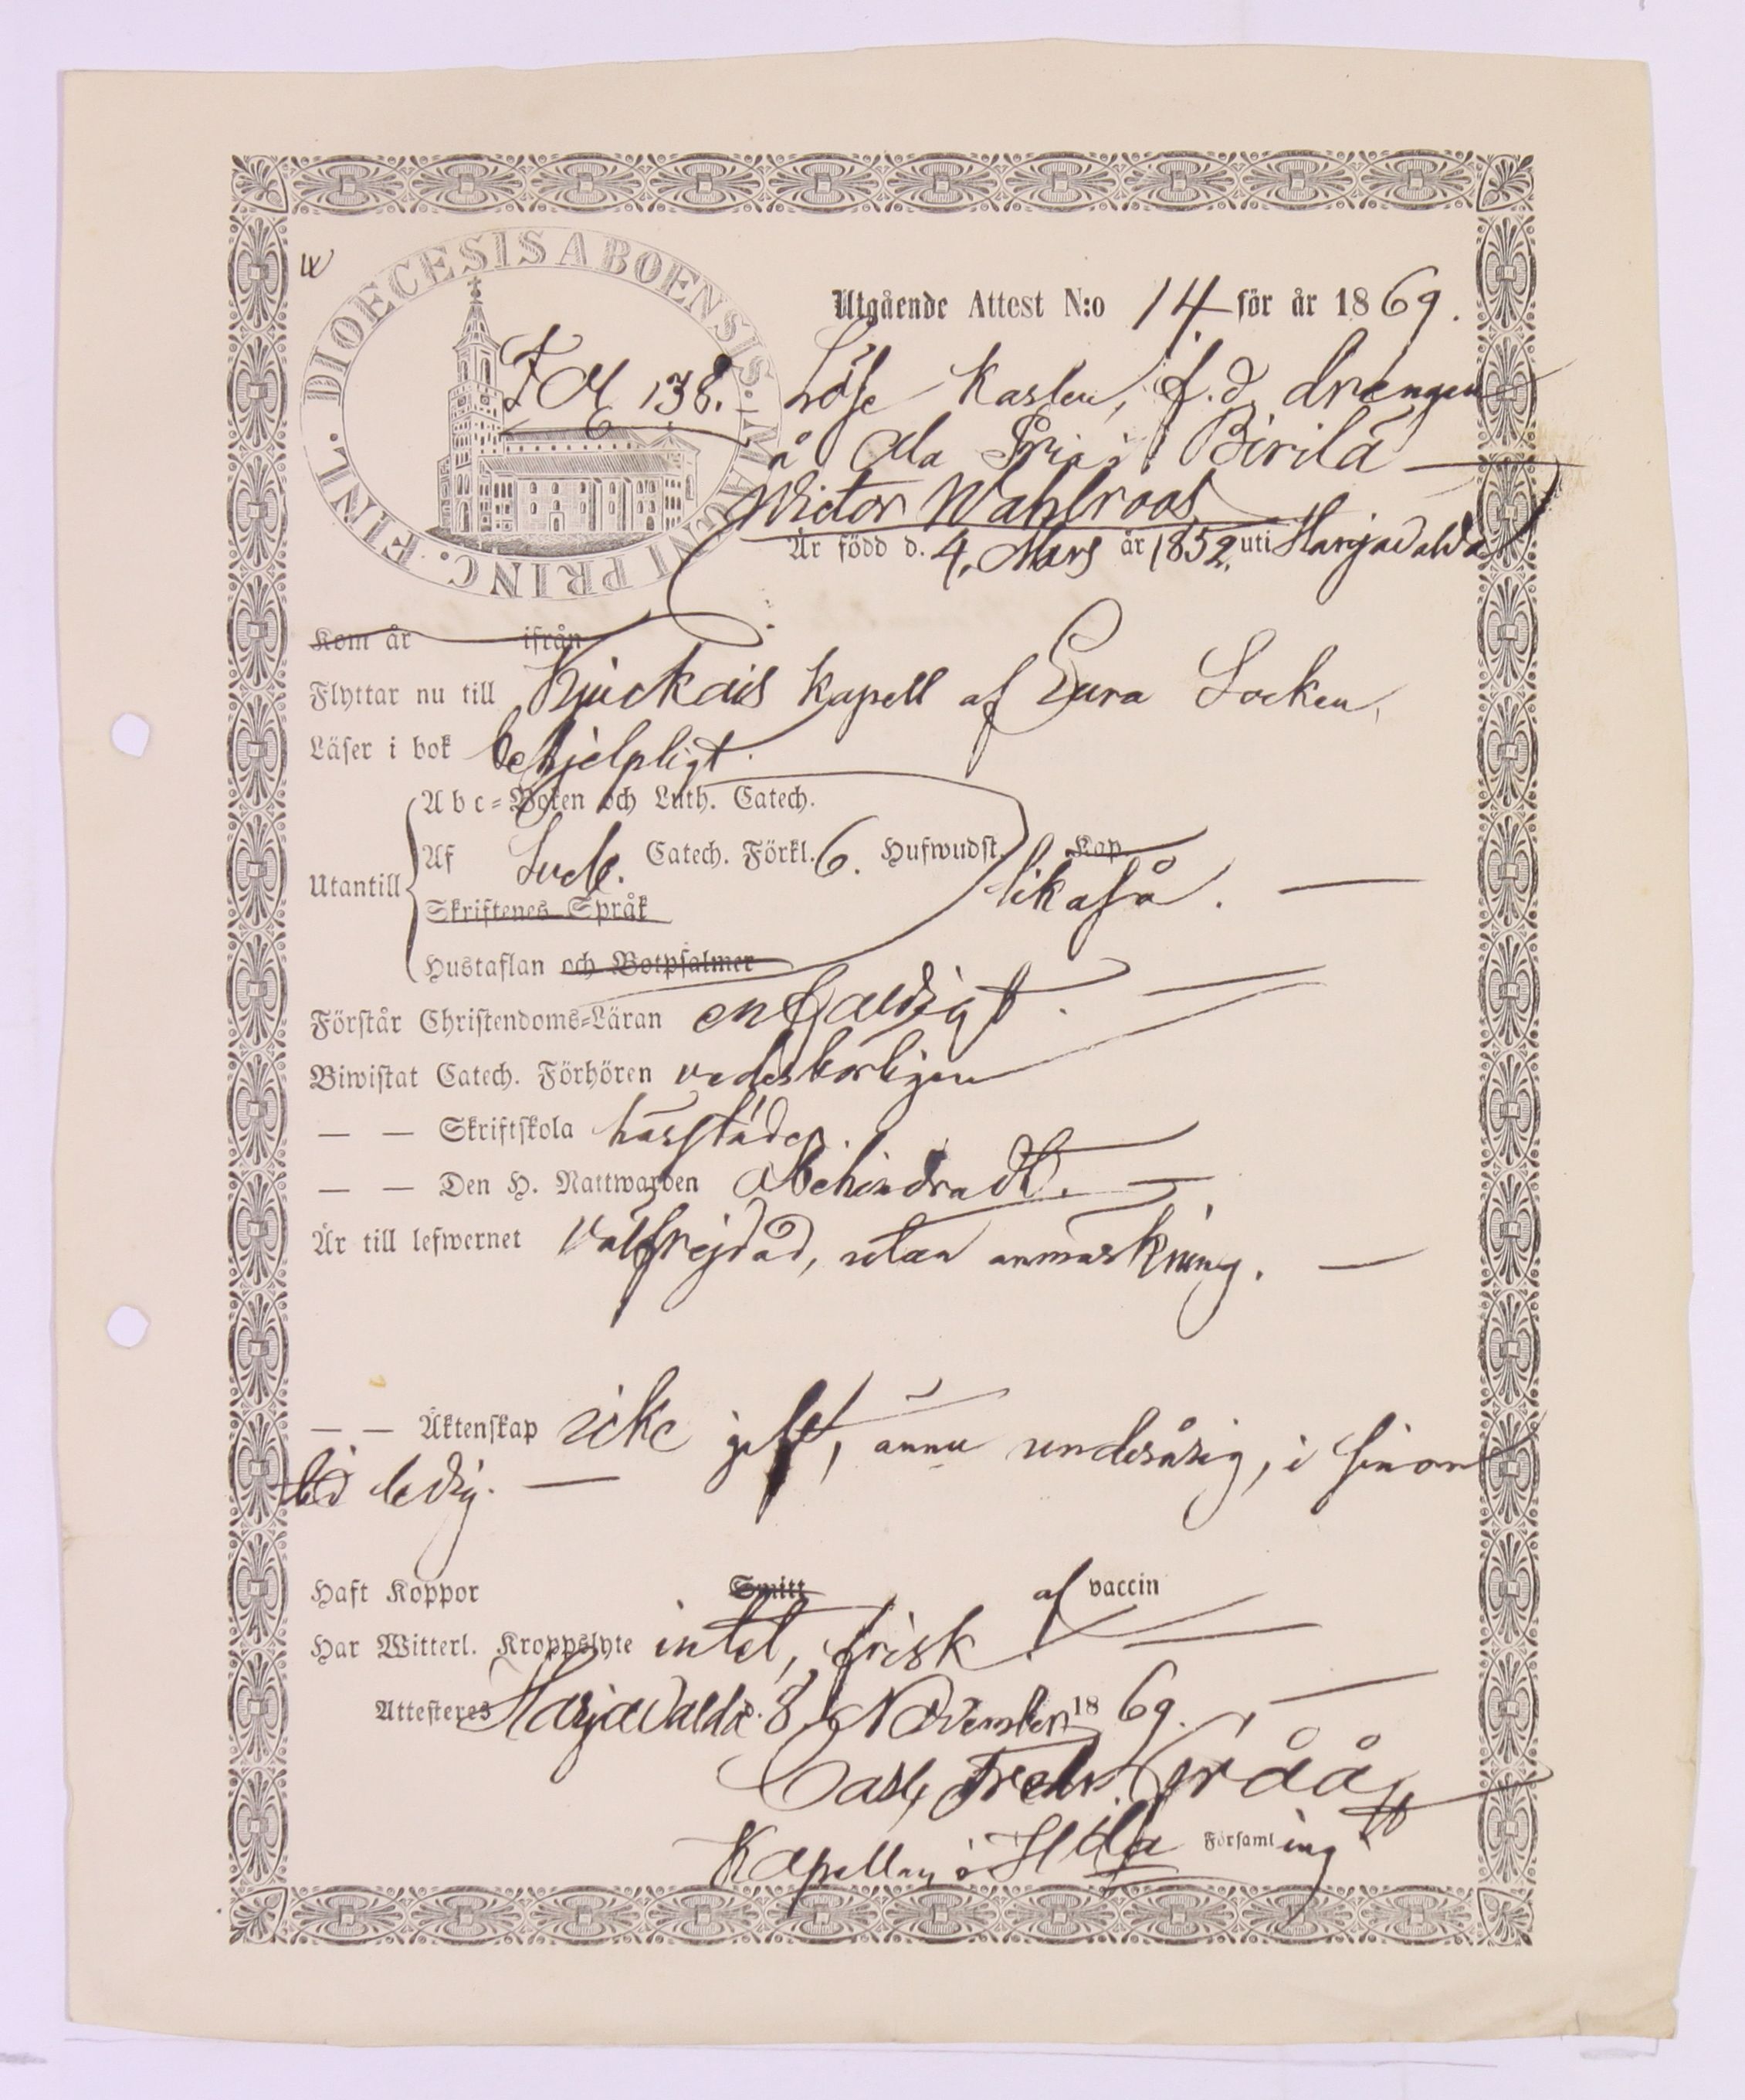 DIOECESIS ABOENSIS. MAGNI PRINC. FINL.
Utgående Attest N:o 14 för år 1869.
138. Löse Karlen, f.d. drengen
å Ala Pirilä
Victor Wahlroos
Är född d. 4. Mars år 1852. uti Harjavalda
Kom år ifrån
Flyttar nu till Kjuckais kapell af Eura Socken,
Läser i bok behjelpligt.
Abc-Boken och Luth. Catech.
Utantill Af Sveb. Catech. Förkl. 6. Hufwudst. Kap.
likaså.
Skriftenes Språk
Hustaflan och Botpsalmer
Förstår Christendoms-Läran enfaldigt.
Biwistat Catech. Förhören vederbörligen
— — Skriftskola härstädes.
— — Den H. Nattwarden Obehindradt.
Är till lefwernet välfrejdad, utan anmärkning.
— — Äktenskap icke gift, ännu underårig, i sinom
tid ledig.
Haft Koppor Smitt af vaccin
Har Witterl. Kroppslyte intet, frisk
Attesteres Harjavalda. 8 November 1869.
Carl Fredr. Gråå
Kapellan i Hda Församling